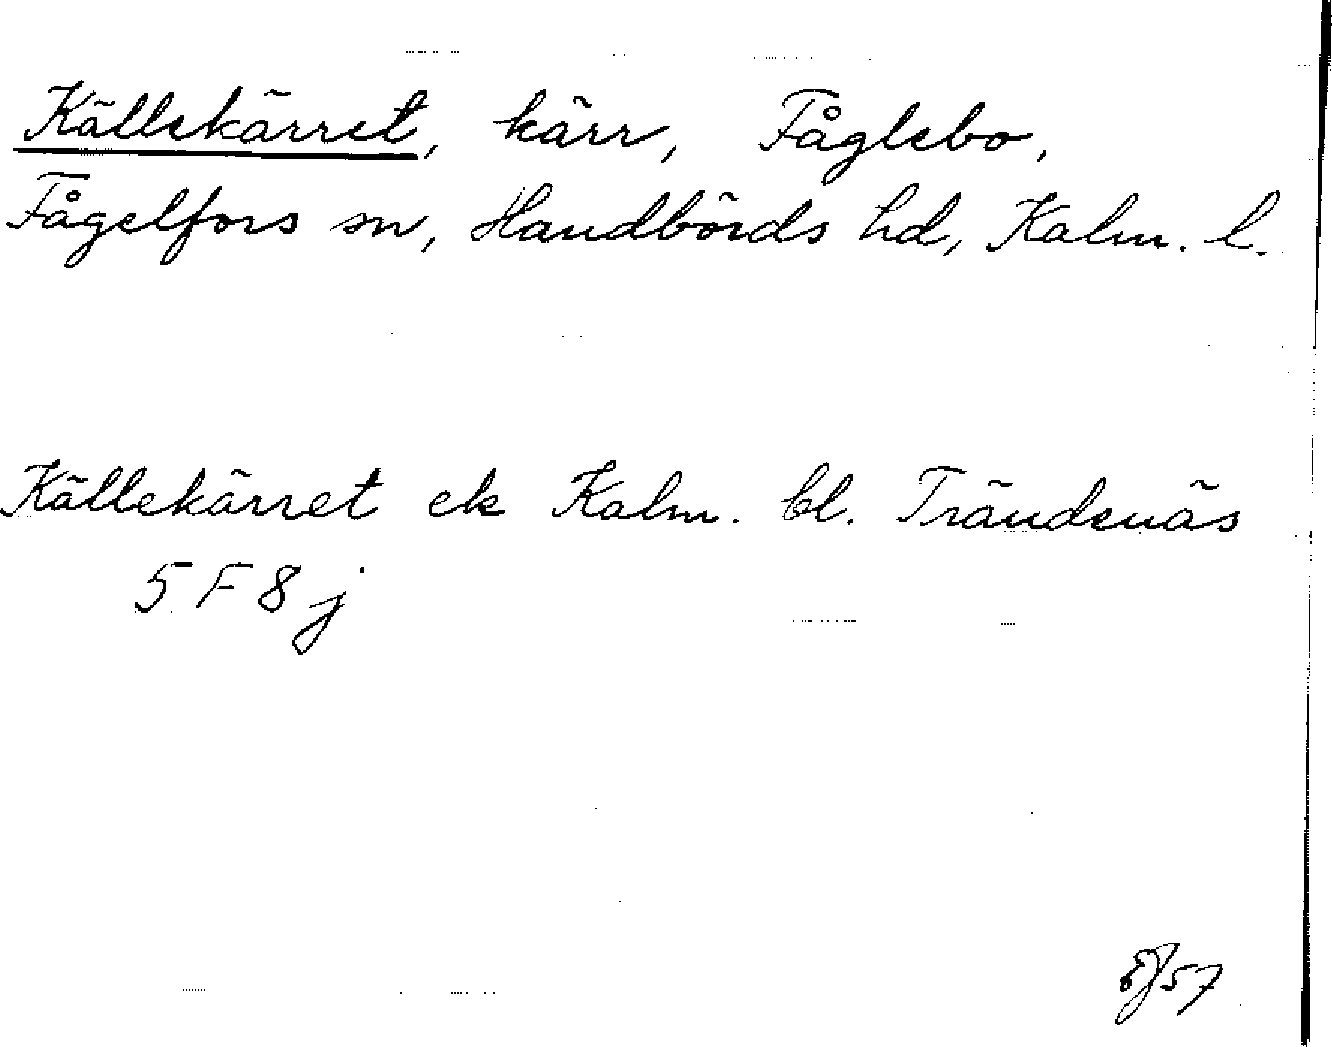 Källekärret, kärr, Fåglebo,
Fågelfors sn, Handbörds hd, Kalm. l.
Källekärret ek Kalm. bl. Trändenäs
5 F 8 j
57